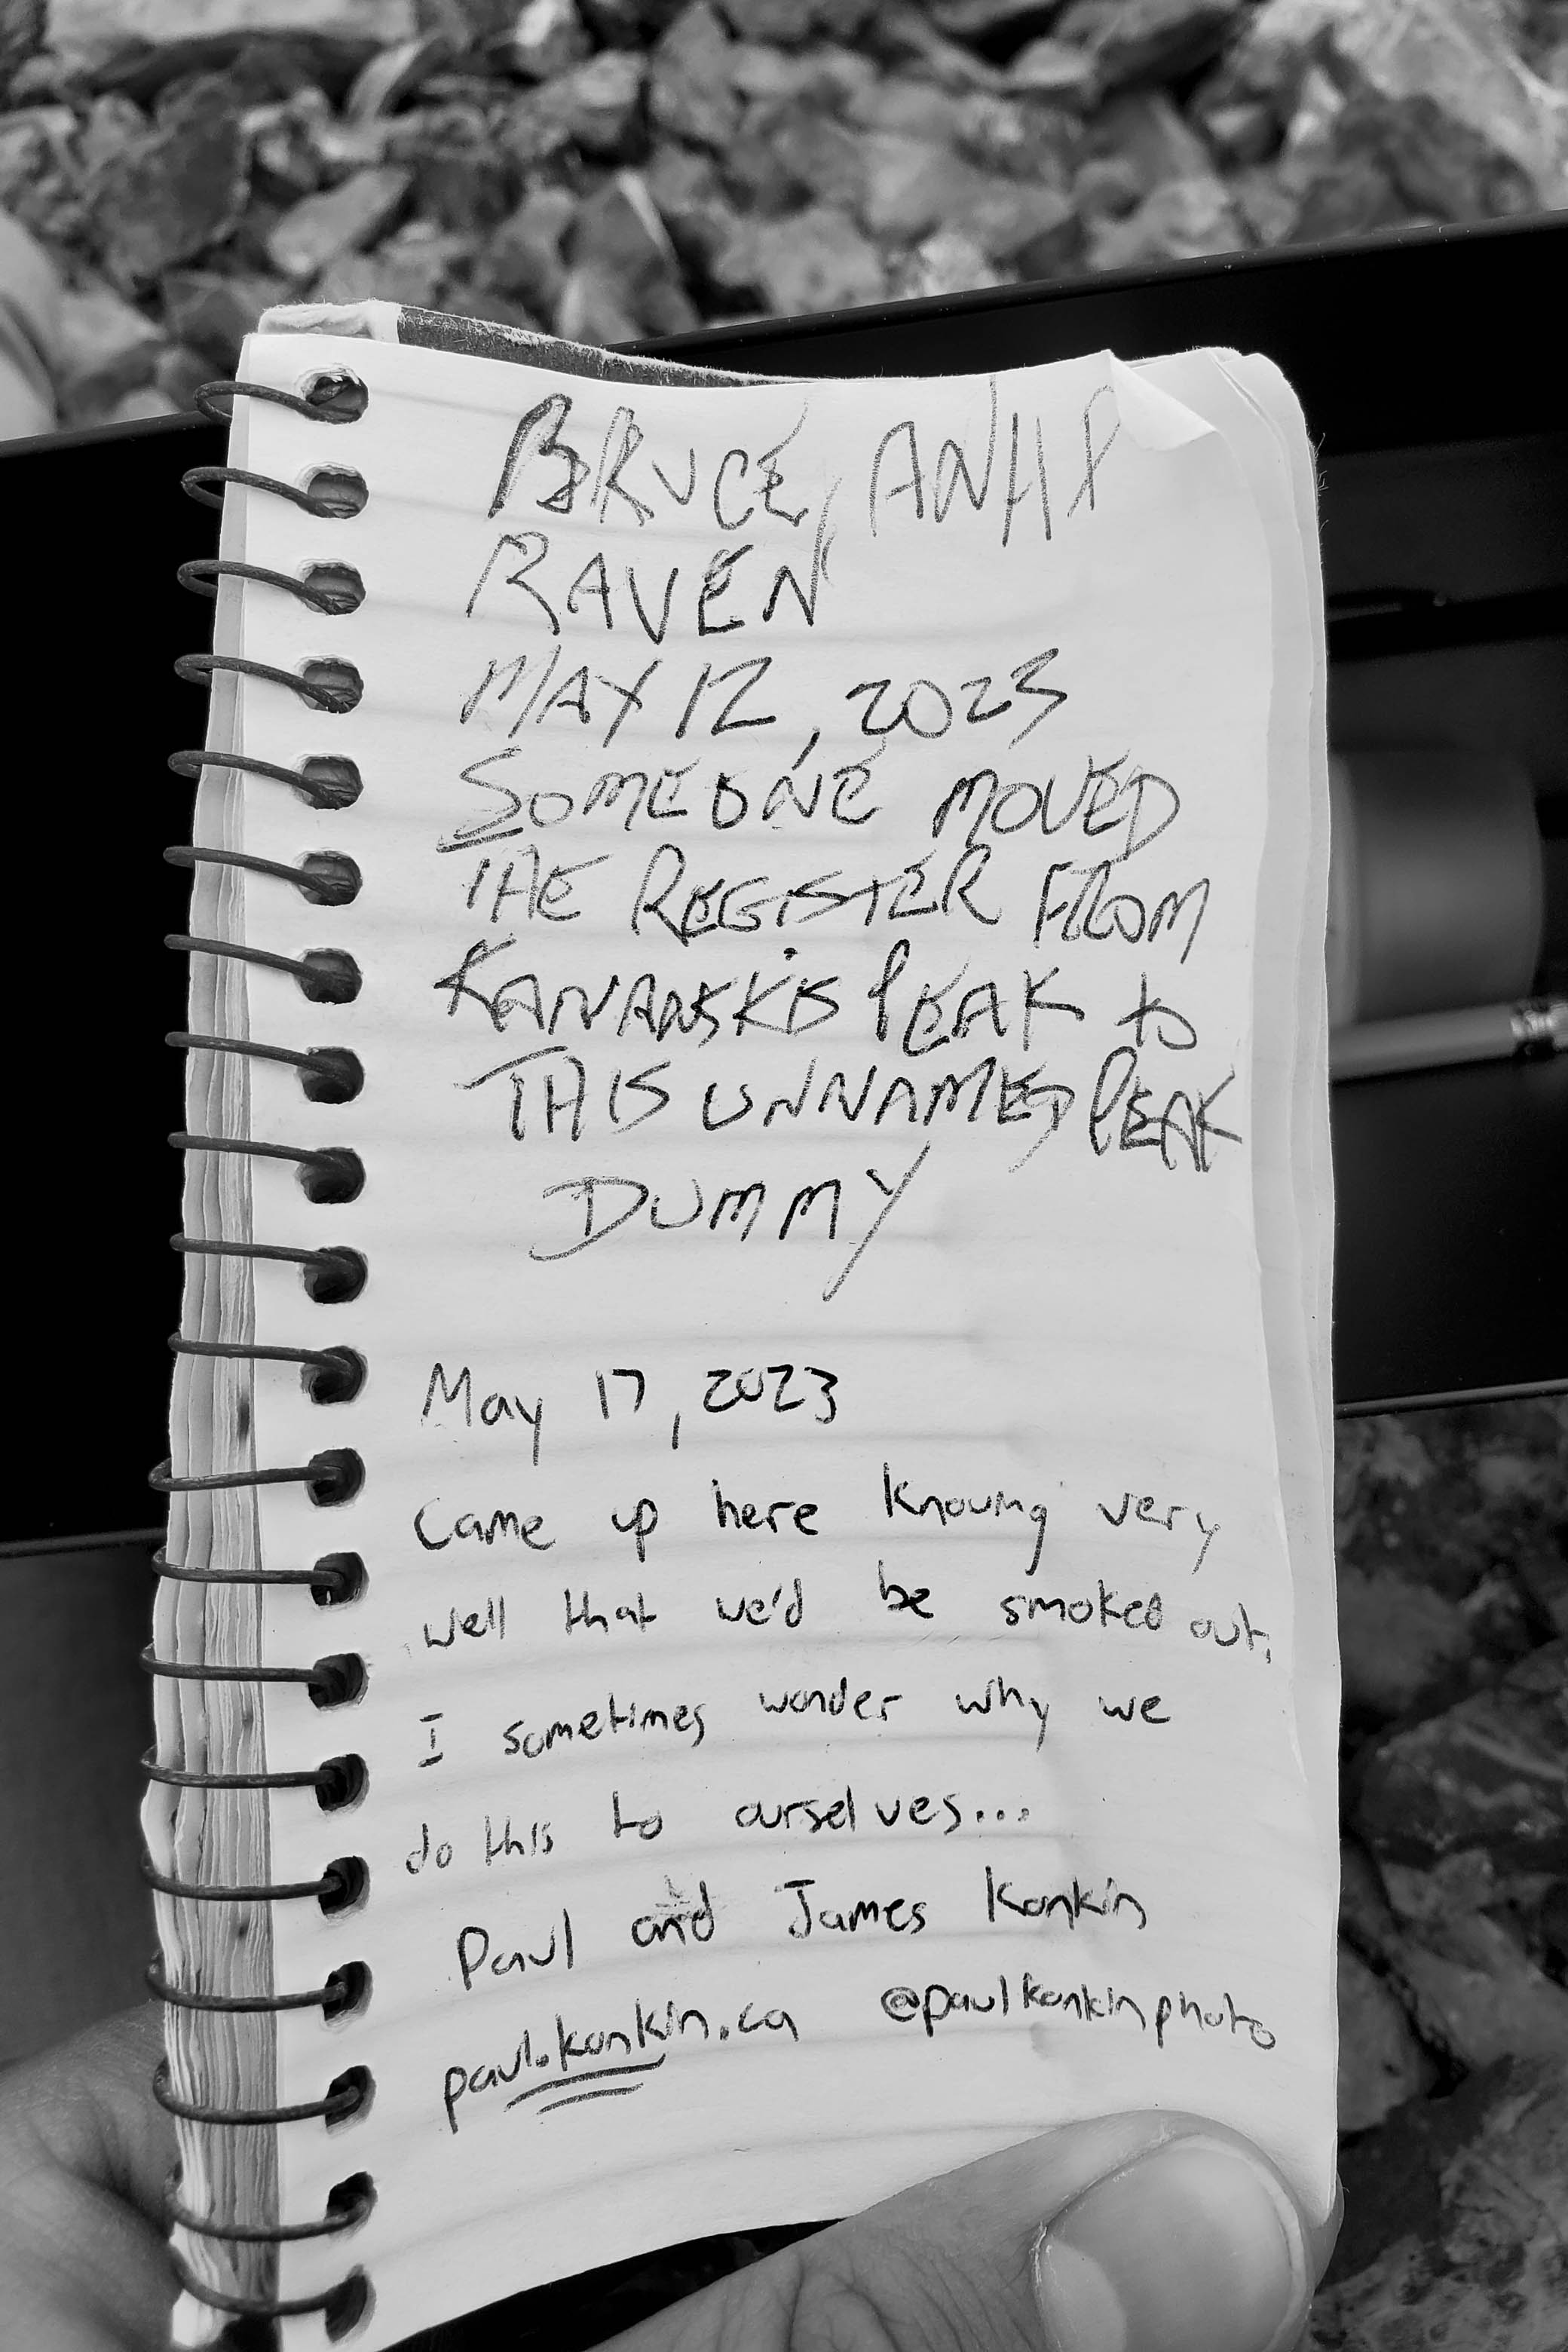 BRUCE, ANH
RAVEN
MAY 12, 2023
SOMEONE MOVED
THE REGISTER FROM
KANANSKIS PEAK to
THIS UNNAMED PEAK
DUMMY
May 17, 2023
Came up here knowing very
well that we'd be smoked out.
I sometimes wonder why we
do this to ourselves...
Paul and James Konkin
paul.konkin.ca @paulkonkinphoto